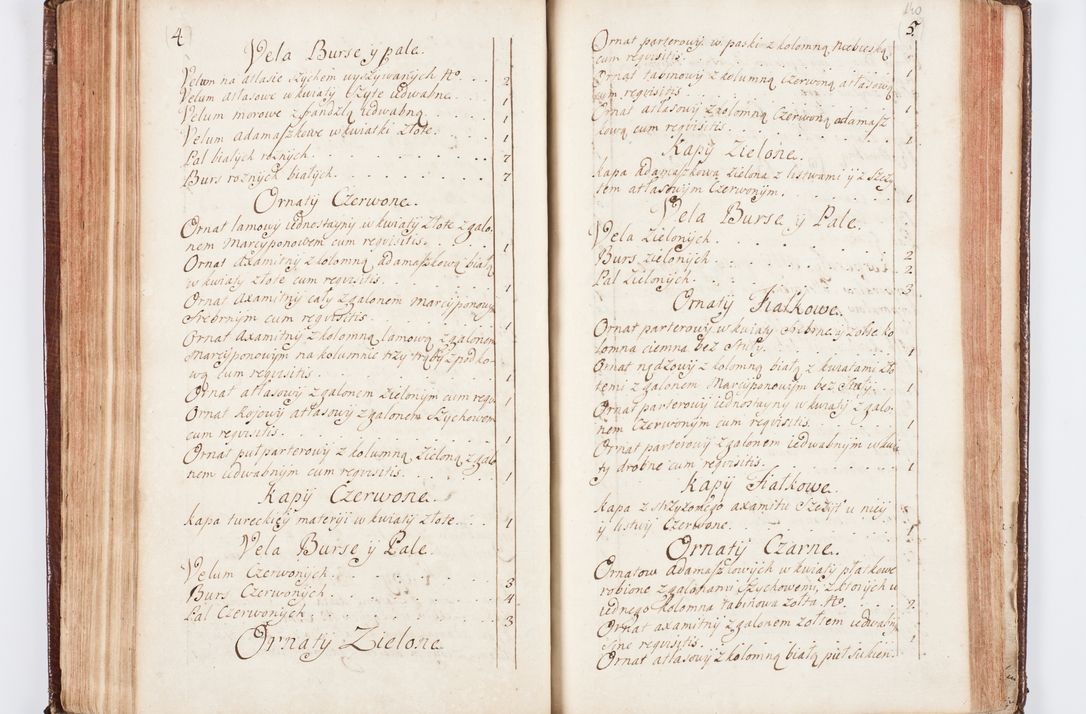 4
Vela Burse ÿ pale.
Velum na atlasie szychem wyszywanych No. 2
Velum atłasowe w kwiaty szyte iedwabne. 1
Velum morowe z frandzlą iedwabną 1
Velum adamaszkowe w kwiatki złote. 1
Pal białych roznych. 7
Burs roznych białych. 7
Ornaty Czerwone.
Ornat lamowy iednostayny w kwiaty złote z galo-
nem Marcyponowem cum reqvisitis. 1
Ornat axamitny z kolomną adamaszkową białą
w kwiaty złote cum reqvisitis. 1
Ornat axamitny cały z galonem marcyponowy
srebrnym cum reqvisitis. 1
Ornat axamitny z kolomną lamową z galonem
Marcyponowym na kolumnie trzy trąby z podko-
wą cum reqvisitis. 1
Ornat atłasowy z galonem zielonym cum reqvi 1
Ornat kojowy atłasowy z galonem szychowem
cum reqvisitis. 1
Ornat pułparterowy z kolumną zieloną z galo
nem iedwabnym cum reqvisitis. 1
Kapy Czerwone.
Kapa tureckiey materyi w kwiaty złote. 1
Vela Burse ÿ Pale.
Velum Czerwonych. 3
Burs Czerwonych. 4
Pal Czerwonych 3
Ornaty Zielone
140
5.
Ornat parterowy w paski z kolomną niebieską
cum reqvisitis. 1
Ornat tabinowy z kolumną czerwoną atłasową
cum reqvisitis. 1
Ornat atłasowy z kolomną czerwoną adamasz
kową cum reqvisitis 1
Kapy Zielone.
Kapa adamaszkowa zielona z listwami ÿ z szczy
tem atłasowym Czerwonym. 1
Vela Burse ÿ Pale.
Vela Zielonych. 2
Burs zielonych 2
Pal Zielonych. 3
Ornaty Fiałkowe.
Ornat parterowy w kwiaty srebrne y złote ko
lomna ciemna bez stuły. 1
Ornat rydzowy z kolomną białą z kwiatami zło
temi z galonem Marcyponowym bez stuły. 1
Ornat parterowy iednostayny w kwiaty z galo-
nem Czerwonym cum reqvisitis. 1
Ornat parterowy z galonem iedwabnym w kwia
ty drobne cum reqvisitis. 1
Kapy Fiałkowe.
Kapa z strzyżonego axamitu szczyt u niey
y listwy Czerwone. 1
Ornaty Czarne.
Ornatow adamaszkowych w kwiaty płatkowe
robione z galonami szychowemi, z ktorych u
iednego kolomna tabinowa żołta No. 2.
Ornat axamitny z galonem żołtem iedwabny
sine reqvisitis. 1
Ornat atłasowy z kolomną białą pięt sukien.